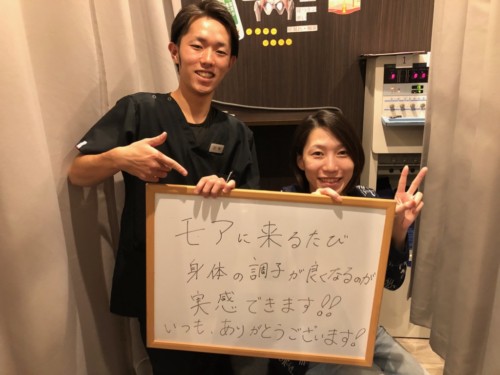 モアに来るたび
身体の調子が良くなるのが
実感できます!!
いつも、ありがとうございます!